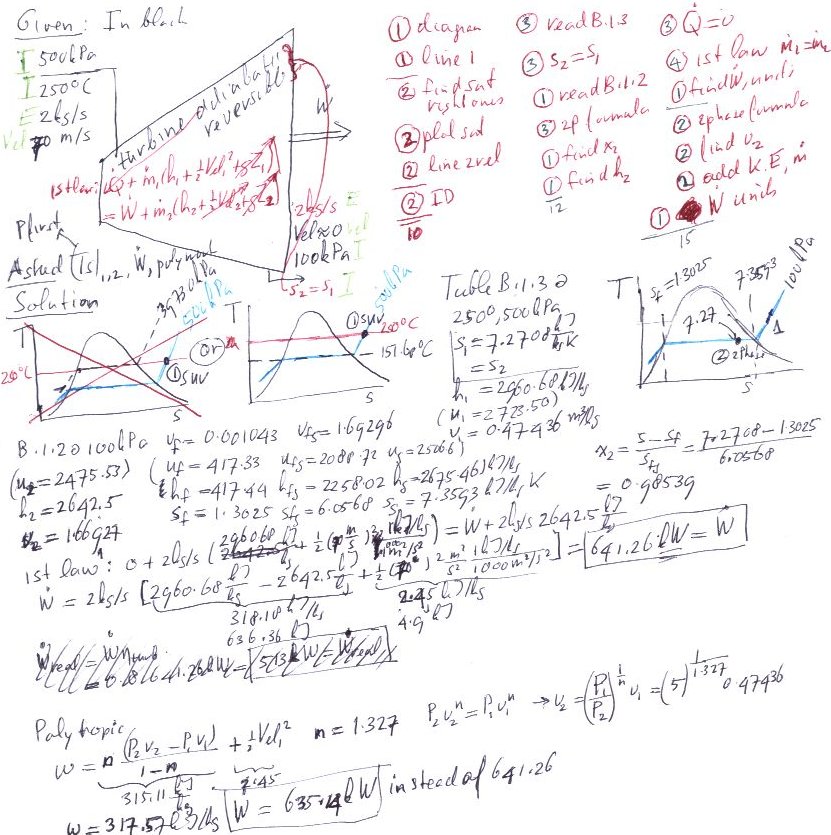 Given: In black
I 500kPa
I 250°C
E 2kg/s
Vel 70 m/s
turbine adiabatic
reversible
Ẇ
1st law: Q̇ + ṁ₁(h₁+½Vel₁²+gZ₁)
= Ẇ + ṁ₂(h₂+½Vel₂²+gZ₂)
2kg/s E
Vel≈0 vel
100kPa I
s₂=s₁ I
① diagram
① line 1
② find sat
right ones
② plot sat
② line 2 vel
② ID
10
③ read B.1.3
③ s₂=s₁
① read B.1.2
③ 2p formula
① find x₂
① find h₂
12
③ Q̇=0
④ 1st law ṁ₁=ṁ₂
① find Ẇ, units
② 2phase formula
② find v₂
② add K.E, ṁ
① Ẇ units
15
P first
Asked [Ts]₁,₂, Ẇ, polynout
Solution
T
3973.0kPa
500kPa
250°C
①SUV
S
or
T
500kPa
①SUV
250°C
151.86°C
S
Table B.1.3 @
250°, 500kPa
s₁ = 7.2708 kJ/kgK
= s₂
h₁ = 2960.68 kJ/kg
(u₁ = 2723.50)
v₁ = 0.47436 m³/kg
T
sf=1.3025
7.3593
100kPa
7.27
1
② 2Phase
S
B.1.2@100kPa vf = 0.001043 vfg = 1.69296
(u₂ = 2475.53) (uf = 417.33 ufg = 2088.72 ug = 2506.6)
h₂ = 2642.5 hf = 417.44 hfg = 2258.02 hg = 2675.46 kJ/kg
v₂ = 1.66927 sf = 1.3025 sfg = 6.0568 sg = 7.3593 kJ/kg K
x₂ = (s−sf)/sfg = (7.2708−1.3025)/6.0568
= 0.98539
1st law: 0 + 2kg/s (2960.68 kJ/kg + ½(70 m/s)² 1kJ/kg / 1000m²/s²) = Ẇ + 2kg/s 2642.5 kJ/kg
Ẇ = 2kg/s [2960.68 kJ/kg − 2642.5 kJ/kg + ½(70)² m²/s² 1kJ/kg / 1000m²/s²] = 641.26 kW = Ẇ
318.18 kJ/kg 2.45 kJ/kg
636.36 kJ 4.9 kJ
Ẇreal = Ẇ ηturb
= 0.8 641.26kW = 513kW = Ẇreal
Polytropic
w = n (P₂v₂−P₁v₁)/(1−n) + ½Vel₁² n = 1.327 P₂v₂ⁿ = P₁v₁ⁿ → v₂ = (P₁/P₂)^(1/n) v₁ = (5)^(1/1.327) 0.47436
315.11 kJ/kg 2.45
w = 317.57 kJ/kg Ẇ = 635.14 kW instead of 641.26